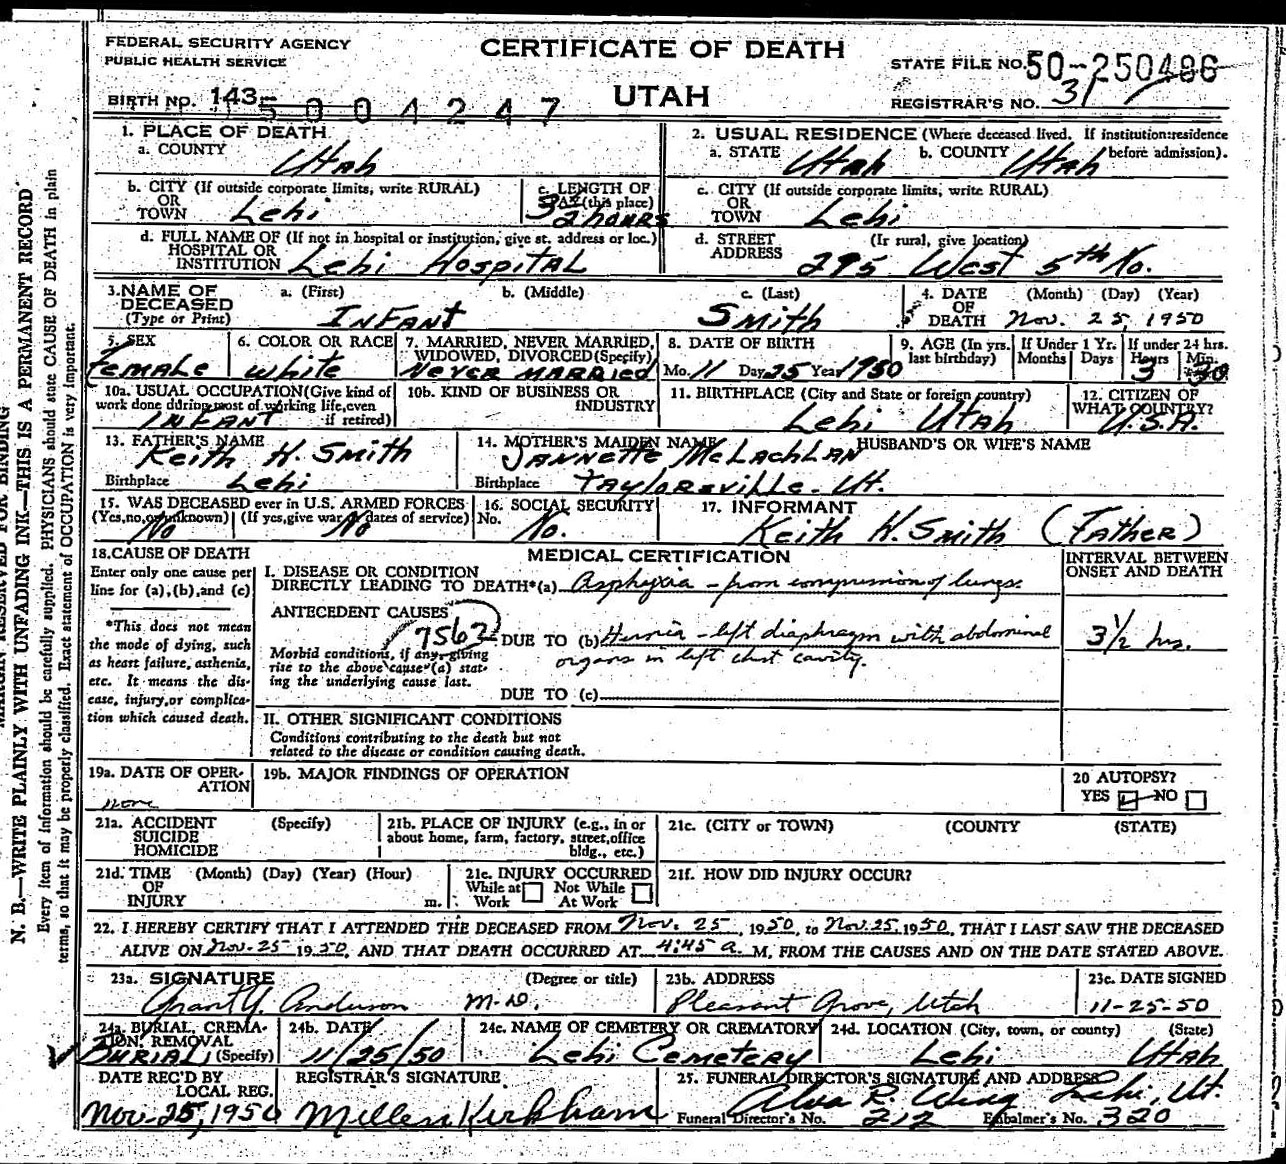 FEDERAL SECURITY AGENCY
PUBLIC HEALTH SERVICE
CERTIFICATE OF DEATH
UTAH
STATE FILE NO. 50-250486
BIRTH NO. 143-5004247
REGISTRAR'S NO. 31
1. PLACE OF DEATH
a. COUNTY Utah
2. USUAL RESIDENCE (Where deceased lived. If institution:residence before admission).
a. STATE Utah b. COUNTY Utah
b. CITY (If outside corporate limits, write RURAL)
OR
TOWN Lehi
c. LENGTH OF
STAY (this place)
3 1/2 hours
c. CITY (If outside corporate limits, write RURAL)
OR
TOWN Lehi
d. FULL NAME OF (If not in hospital or institution, give st. address or loc.)
HOSPITAL OR
INSTITUTION Lehi Hospital
d. STREET (If rural, give location)
ADDRESS 295 West 5th No.
3. NAME OF DECEASED (Type or Print)
a. (First) b. (Middle) c. (Last)
Infant Smith
4. DATE OF DEATH (Month) (Day) (Year)
Nov. 25, 1950
5. SEX
Female
6. COLOR OR RACE
White
7. MARRIED, NEVER MARRIED,
WIDOWED, DIVORCED (Specify)
Never Married
8. DATE OF BIRTH
Mo. 11 Day 25 Year 1950
9. AGE (In yrs. last birthday)
If Under 1 Yr. Months Days
If under 24 hrs. Hours Min.
3 30
10a. USUAL OCCUPATION (Give kind of
work done during most of working life, even
if retired)
Infant
10b. KIND OF BUSINESS OR
INDUSTRY
11. BIRTHPLACE (City and State or foreign country)
Lehi Utah
12. CITIZEN OF
WHAT COUNTRY?
U.S.A.
13. FATHER'S NAME
Keith H. Smith
Birthplace Lehi
14. MOTHER'S MAIDEN NAME
Jannette McLachlan
Birthplace Taylorsville. Ut.
HUSBAND'S OR WIFE'S NAME
15. WAS DECEASED ever in U.S. ARMED FORCES
(Yes, no, or unknown) (If yes, give war or dates of service)
No No
16. SOCIAL SECURITY
No. No.
17. INFORMANT
Keith H. Smith (Father)
18. CAUSE OF DEATH
Enter only one cause per
line for (a), (b), and (c)
*This does not mean
the mode of dying, such
as heart failure, asthenia,
etc. It means the dis-
ease, injury, or complica-
tion which caused death.
MEDICAL CERTIFICATION
I. DISEASE OR CONDITION
DIRECTLY LEADING TO DEATH*(a) Asphyxia - from compression of lungs.
INTERVAL BETWEEN
ONSET AND DEATH
ANTECEDENT CAUSES
7562
DUE TO (b) Hernia - left diaphragm with abdominal
organs in left chest cavity.
3 1/2 hrs.
Morbid conditions, if any, giving
rise to the above cause (a) stat-
ing the underlying cause last.
DUE TO (c)
II. OTHER SIGNIFICANT CONDITIONS
Conditions contributing to the death but not
related to the disease or condition causing death.
19a. DATE OF OPER-
ATION
none
19b. MAJOR FINDINGS OF OPERATION
20 AUTOPSY?
YES NO
21a. ACCIDENT (Specify)
SUICIDE
HOMICIDE
21b. PLACE OF INJURY (e.g., in or
about home, farm, factory, street, office
bldg., etc.)
21c. (CITY or TOWN) (COUNTY (STATE)
21d. TIME (Month) (Day) (Year) (Hour)
OF
INJURY m.
21e. INJURY OCCURRED
While at Work Not While At Work
21f. HOW DID INJURY OCCUR?
22. I HEREBY CERTIFY THAT I ATTENDED THE DECEASED FROM Nov. 25, 1950, to Nov. 25, 1950, THAT I LAST SAW THE DECEASED
ALIVE ON Nov. 25 1950, AND THAT DEATH OCCURRED AT 4:45 a. M, FROM THE CAUSES AND ON THE DATE STATED ABOVE.
23a. SIGNATURE (Degree or title)
Grant Y. Anderson M.D.
23b. ADDRESS
Pleasant Grove, Utah
23c. DATE SIGNED
11-25-50
24a. BURIAL, CREMA-
TION, REMOVAL
Burial (Specify)
24b. DATE
11/25/50
24c. NAME OF CEMETERY OR CREMATORY
Lehi Cemetery
24d. LOCATION (City, town, or county) (State)
Lehi Utah
DATE REC'D BY
LOCAL REG.
Nov. 25, 1950
REGISTRAR'S SIGNATURE
Kirkham
25. FUNERAL DIRECTOR'S SIGNATURE AND ADDRESS
Alva R. Wing Lehi, Ut.
Funeral Director's No. 212 Embalmer's No. 320
MARGIN RESERVED FOR BINDING
N. B.—WRITE PLAINLY WITH UNFADING INK—THIS IS A PERMANENT RECORD
Every item of information should be carefully supplied. PHYSICIANS should state CAUSE OF DEATH in plain
terms, so that it may be properly classified. Exact statement of OCCUPATION is very important.